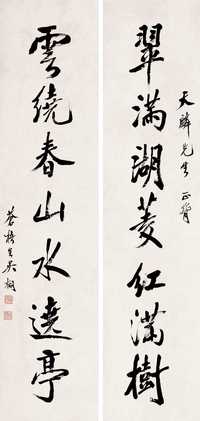 天麟先生 正
翠滿湖菱紅滿樹
雲繞春山水遶亭
蒼梧